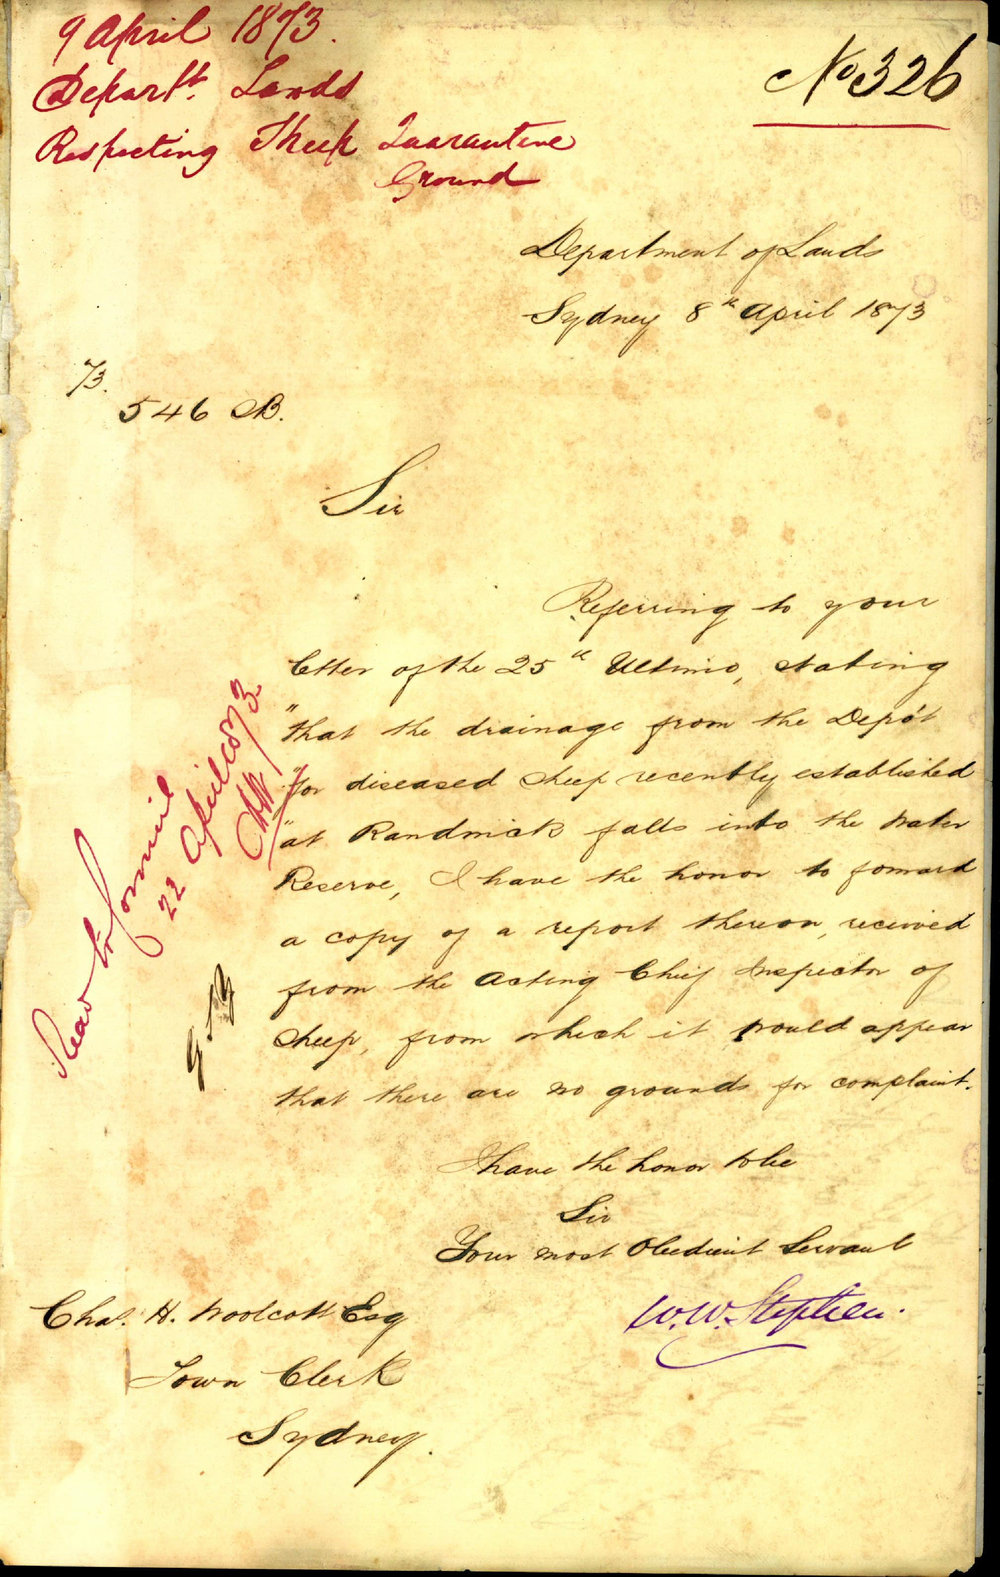 9 April 1873.
Depart<sup>t</sup>. Lands
Respecting Sheep Quarantine
Ground
No 326
Department of Lands
Sydney 8<sup>th</sup> April 1873
73.
546 SB.
Sir
Referring to your
letter of the 25<sup>th</sup> Ultimo, stating
"that the drainage from the Depôt
"for diseased sheep recently established
"at Randwick falls into the Water
Reserve, I have the honor to forward
a copy of a report thereon, received
from the Acting Chief Inspector of
Sheep, from which it would appear
that there are no grounds for complaint.
I have the honor to be
Sir
Your most Obedient Servant
W. W. Stephen.
Chas. H. Woolcott Esq
Town Clerk
Sydney.
Read in Council
22 April 1873